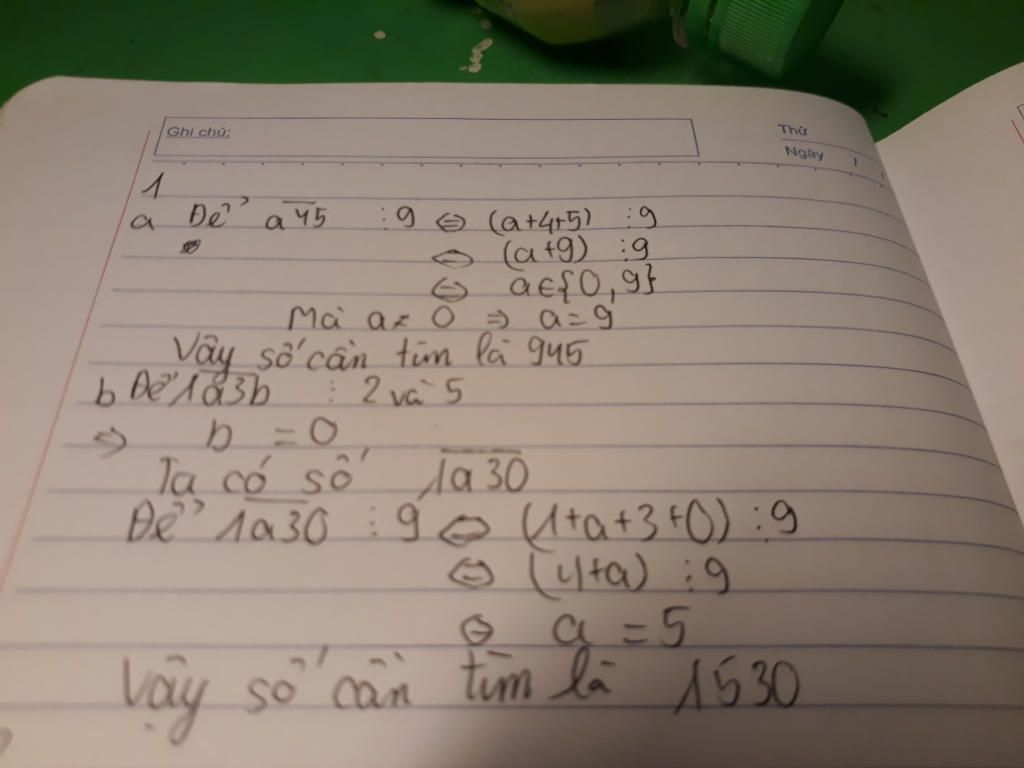 Ghi chú:
Thứ
Ngày / /
1
a Để a45 ⋮ 9 ⇔ (a+4+5) ⋮ 9
⇔ (a+9) ⋮ 9
⇔ a∈{0,9}
Mà a≠ 0 ⇒ a=9
Vậy số cần tìm là 945
b Để 1a3b ⋮ 2 và 5
⇒ b = 0
Ta có số 1a30
Để 1a30 ⋮ 9 ⇔ (1+a+3+0) ⋮ 9
⇔ (4+a) ⋮ 9
⇔ a = 5
Vậy số cần tìm là 1530